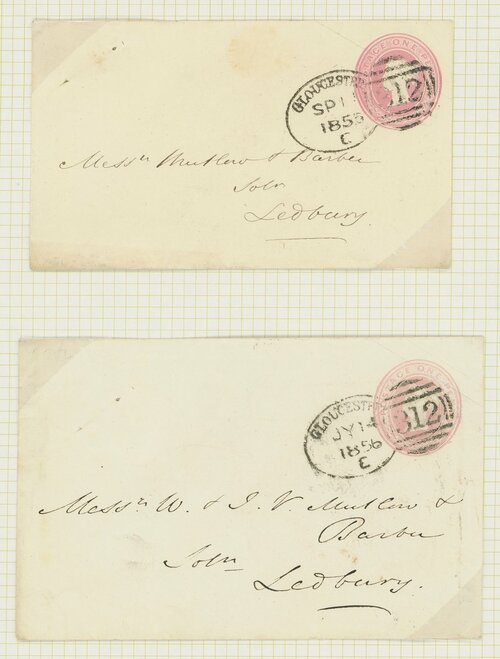 POSTAGE ONE P
GLOUCESTER
SP 1
1855
C
312
Messrs Mutlow & Barber
Solrs
Ledbury.
POSTAGE ONE
GLOUCESTER
JY 14
1856
3
312
Messrs W. & J. V. Mutlow &
Barber
Solrs
Ledbury.